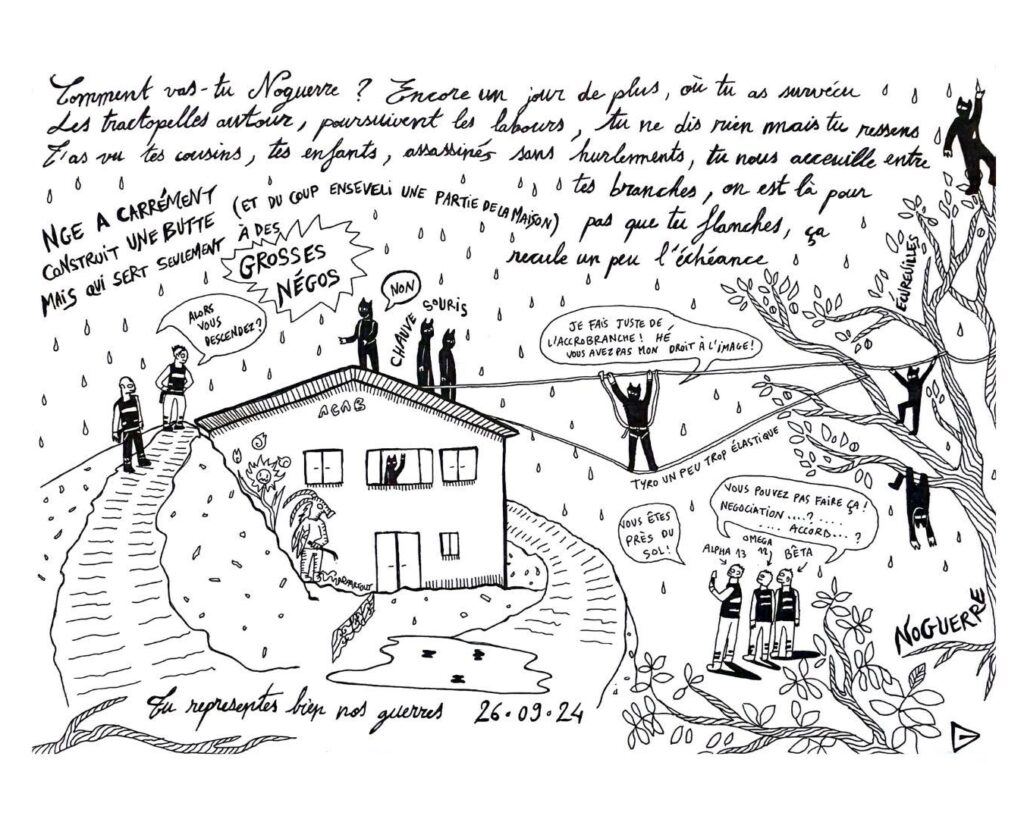 Comment vas-tu Noguerre ? Encore un jour de plus, où tu as survécu
Les tractopelles autour, poursuivent les labours, tu ne dis rien mais tu ressens
T'as vu tes cousins, tes enfants, assassinés sans hurlements, tu nous acceuille entre
tes branches, on est là pour
pas que tu flanches, ça
recule un peu l'échéance
NGE A CARRÉMENT
CONSTRUIT UNE BUTTE
(ET DU COUP ENSEVELI UNE PARTIE DE LA MAISON)
MAIS QUI SERT SEULEMENT
À DES
GROSSES
NÉGOS
ALORS
VOUS
DESCENDEZ?
NON
CHAUVE SOURIS
ÉCUREUILLES
JE FAIS JUSTE DE
L'ACCROBRANCHE! HÉ
VOUS AVEZ PAS MON DROIT À L'IMAGE!
ACAB
TYRO UN PEU TROP ÉLASTIQUE
VOUS POUVEZ PAS FAIRE ÇA!
NEGOCIATION....?....
.... ACCORD...?
VOUS ÊTES
PRÈS DU
SOL!
ALPHA 13
OMEGA
12
BÊTA
NOGUERRE
Tu représentes bien nos guerres 26.09.24